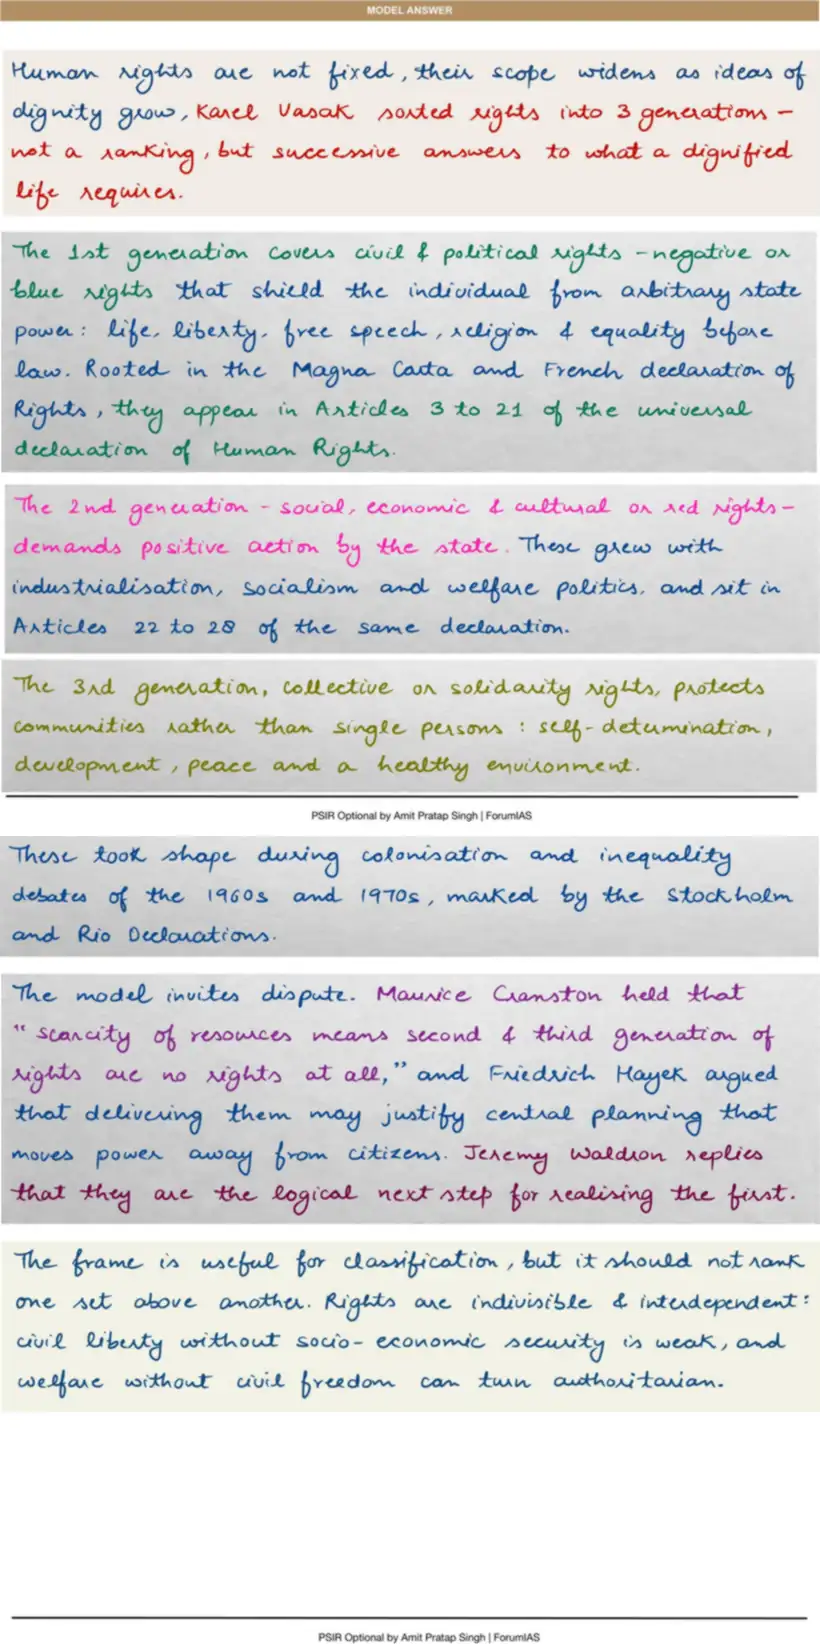 MODEL ANSWER
Human rights are not fixed, their scope widens as ideas of
dignity grow, Karel Vasak sorted rights into 3 generations -
not a ranking, but successive answers to what a dignified
life requires.
The 1st generation covers civil & political rights - negative or
blue rights that shield the individual from arbitrary state
power: life, liberty, free speech, religion & equality before
law. Rooted in the Magna Carta and French declaration of
Rights, they appear in Articles 3 to 21 of the universal
declaration of Human Rights.
The 2nd generation - social, economic & cultural or red rights -
demands positive action by the state. These grew with
industrialisation, socialism and welfare politics, and sit in
Articles 22 to 28 of the same declaration.
The 3rd generation, collective or solidarity rights, protects
communities rather than single persons : self-determination,
development, peace and a healthy environment.
PSIR Optional by Amit Pratap Singh | ForumIAS
These took shape during colonisation and inequality
debates of the 1960s and 1970s, marked by the Stockholm
and Rio Declarations.
The model invites dispute. Maurice Cranston held that
"scarcity of resources means second & third generation of
rights are no rights at all," and Friedrich Hayek argued
that delivering them may justify central planning that
moves power away from citizens. Jeremy Waldron replies
that they are the logical next step for realising the first.
The frame is useful for classification, but it should not rank
one set above another. Rights are indivisible & interdependent:
civil liberty without socio-economic security is weak, and
welfare without civil freedom can turn authoritarian.
PSIR Optional by Amit Pratap Singh | ForumIAS